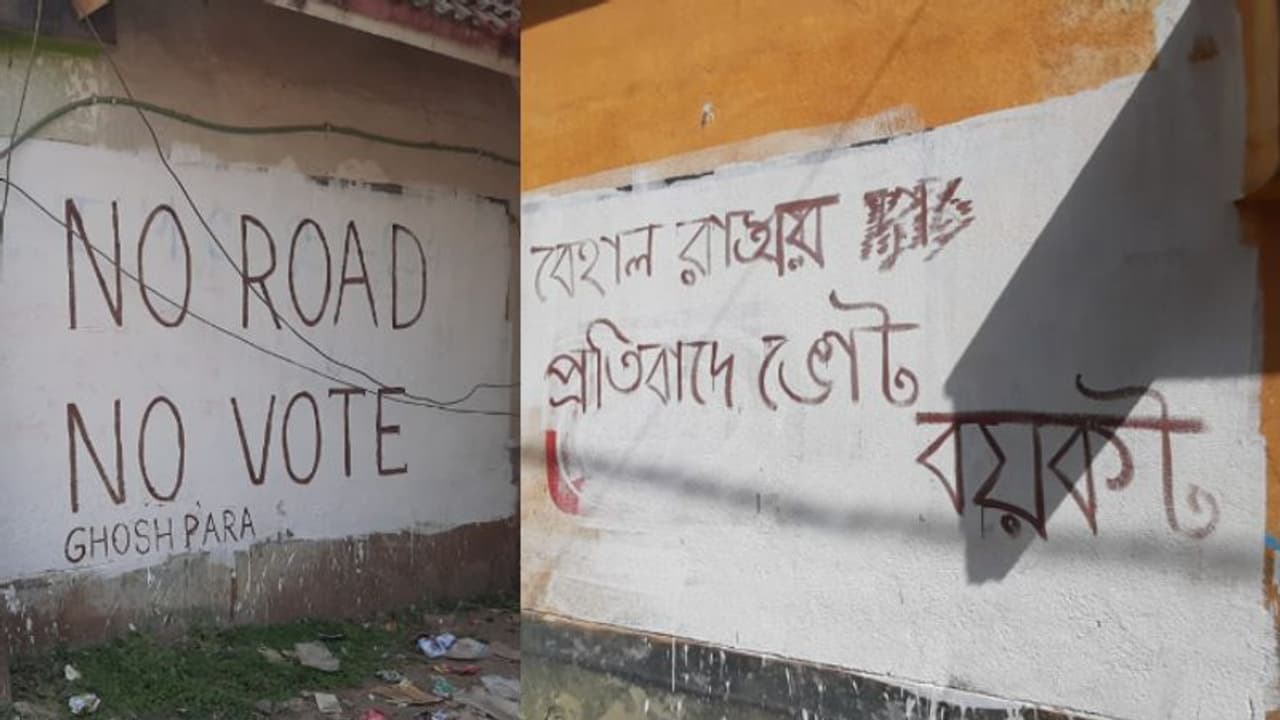 NO ROAD
NO VOTE
GHOSH PARA
বেহাল রাস্তার
প্রতিবাদে ভোট
বয়কট